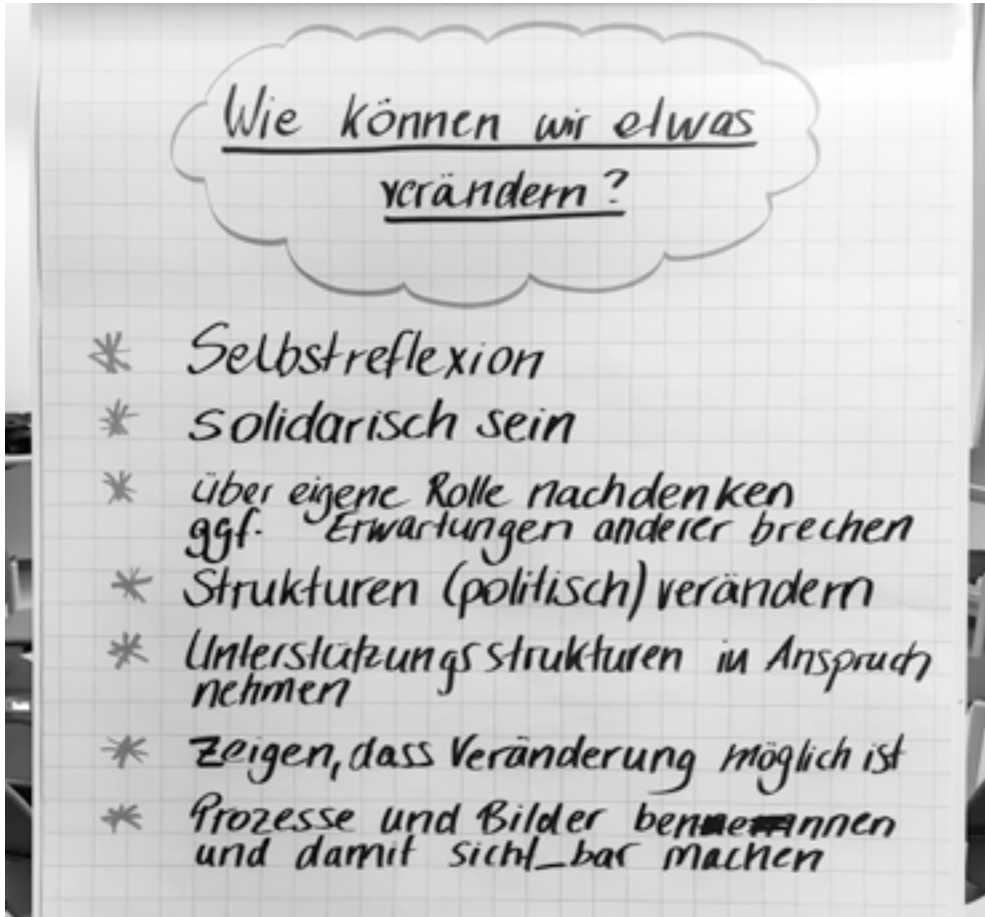 Wie können wir etwas
verändern?
* Selbstreflexion
* solidarisch sein
* über eigene Rolle nachdenken
ggf. Erwartungen anderer brechen
* Strukturen (politisch) verändern
* Unterstützungsstrukturen in Anspruch
nehmen
* Zeigen, dass Veränderung möglich ist
* Prozesse und Bilder bennennen
und damit sicht_bar machen